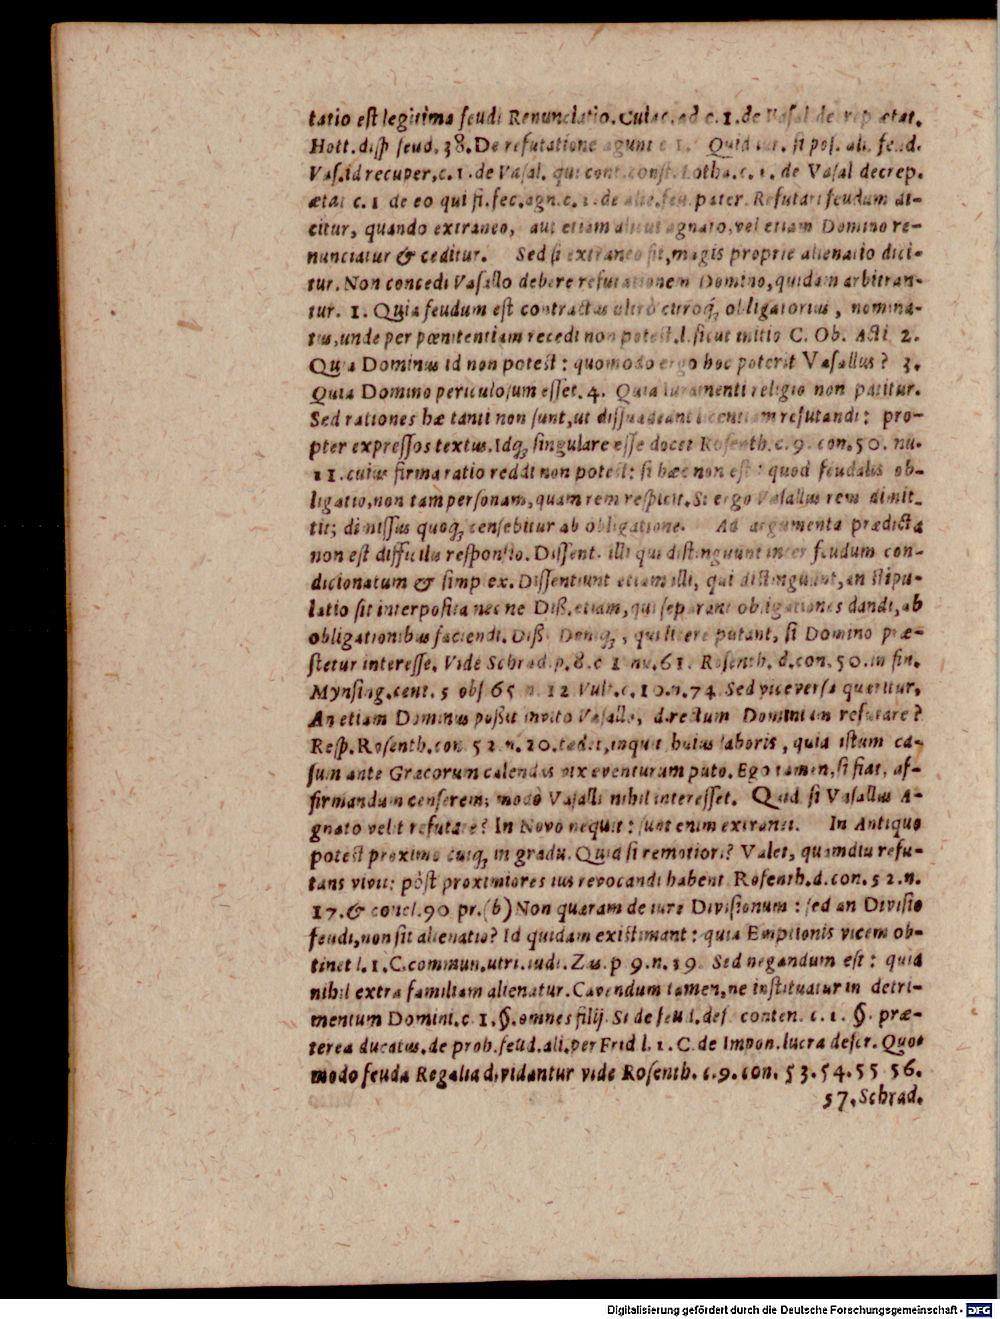 tatio est legitima feudi Renunciatio. Cuiac. ad c. 1. de Vasal decrep ætat.
Hott. disp feud, 38. De refutatione agunt c 1. Quid iur. si pos. ali. feud.
Vas. id recuper, c. 1. de Vasal. qui cont. const. Lotha. c. 1. de Vasal decrep.
ætat c. 1 de eo qui fi. fec. agn. c. 1. de alie. feu. pater. Refutari feudum di-
citur, quando extraneo, aut etiam alicui agnato, vel etiam Domino re-
nunciatur & ceditur. Sed si extraneo fit, magis proprie alienatio dici-
tur. Non concedi Vasallo debere refutationem Domino, quidam arbitran-
tur. 1. Quia feudum est contractus ultrò citroq́; obligatorius, nomina-
tus, unde per pœnitentiam recedi non potest. l. sicut initio C. Ob. Acti 2.
Quia Dominus id non potest: quomodo ergo hoc poterit Vasallus? 3.
Quia Domino periculosum esset. 4. Quia iuramenti religio non patitur.
Sed rationes hæ tanti non sunt, ut dissuadeant licentiam refutandi: pro-
pter expressos textus. Idq́; singulare esse docet Rosenth. c. 9. con. 50. nu.
11. cuius firma ratio reddi non potest: si hæc non est: quod feudalis ob-
ligatio, non tam personam, quam rem respicit. Si ergo Vasallus rem dimit-
tit; dimissus quoq́; censebitur ab obligatione. Ad argumenta prædicta
non est difficilis responsio. Dissent. illi qui distinguunt inter feudum con-
dicionatum & simplex. Dissentiunt etiam illi, qui distinguunt, an stipu-
latio sit interposita nec ne Diß. etiam, qui separant obligationes dandi, ab
obligationibus faciendi. Diß. Deniq́;, qui licere putant, si Domino præ-
stetur interesse. Vide Schrad. p. 8. c 1 nu. 61. Rosenth. d. con. 50. in fin.
Mynsing. cent. 5 obs 65 n. 12 Vult. c. 10. n. 74 Sed vice versa quæritur,
An etiam Dominus poßit invito Vasallo, directum Dominium refutare?
Resp. Rosenth. con 52. n. 20. tædet, inquit huius laboris, quia istum ca-
sum ante Græcorum calendas vix eventurum puto. Ego tamen, si fiat, af-
firmandum censerem; modò Vasalli nihil interesset. Quid si Vasallus A-
gnato velit refutare? In Novo nequit: sunt enim extranei. In Antiquo
potest proximo cuiq́; in gradu. Quid si remotiori? Valet, quamdiu refu-
tans vivit; pòst proximiores ius revocandi habent Rosenth. d. con. 52. n.
17. & concl. 90 pr. (b) Non quæram de iure Divisionum: sed an Divisio
feudi, non sit alienatio? Id quidam existimant: quia Emptionis vicem ob-
tinet l. 1. C. commun. utri. iudi. Zas. p 9. n. 19. Sed negandum est: quia
nihil extra familiam alienatur. Cavendum tamen, ne instituatur in detri-
mentum Domini. c 1. §. omnes filij. Si de feud. def. conten. c. 1. §. præ-
terea ducatus. de prob. feud. ali. per Frid l. 1. C. de Impon. lucra descr. Quo-
modo feuda Regalia dividantur vide Rosenth. c. 9. con. 53. 54. 55 56.
57. Schrad.
Digitalisierung gefördert durch die Deutsche Forschungsgemeinschaft - DFG